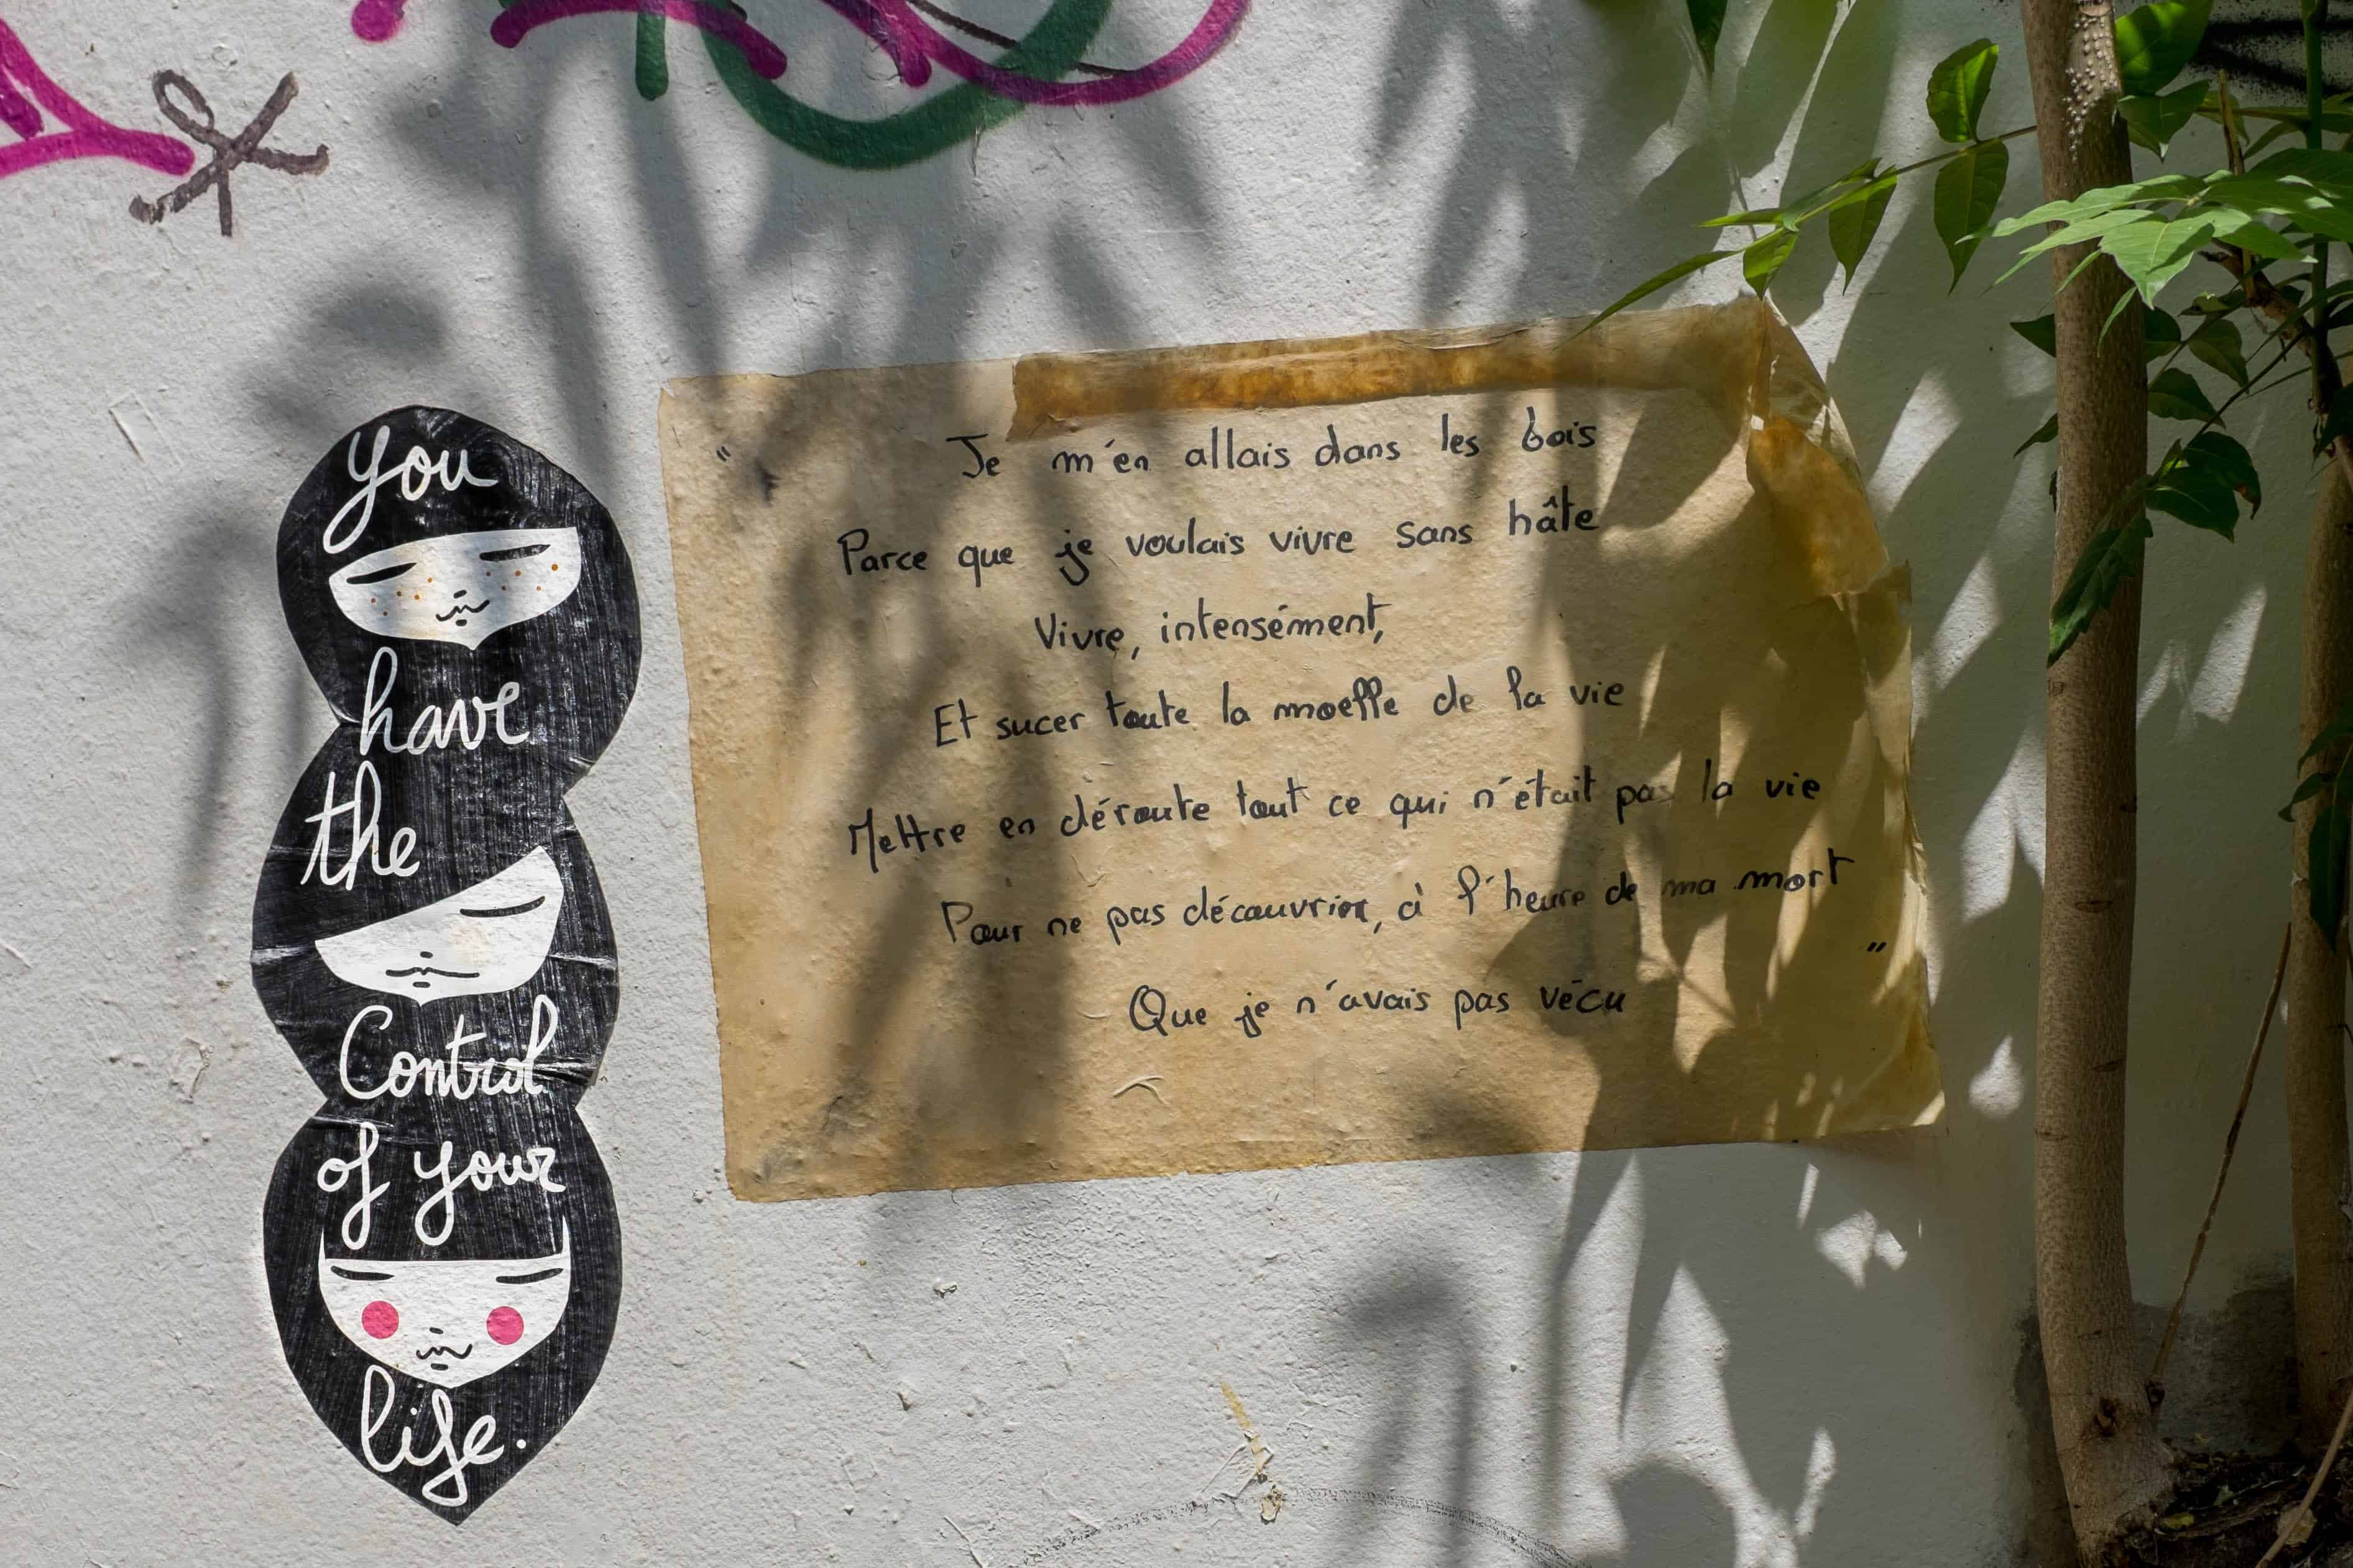 You
have
the
Control
of your
life.
" Je m'en allais dans les bois
Parce que je voulais vivre sans hâte
Vivre, intensément,
Et sucer toute la moelle de la vie
Mettre en déroute tout ce qui n'était pas la vie
Pour ne pas découvrir, à l'heure de ma mort
Que je n'avais pas vécu "